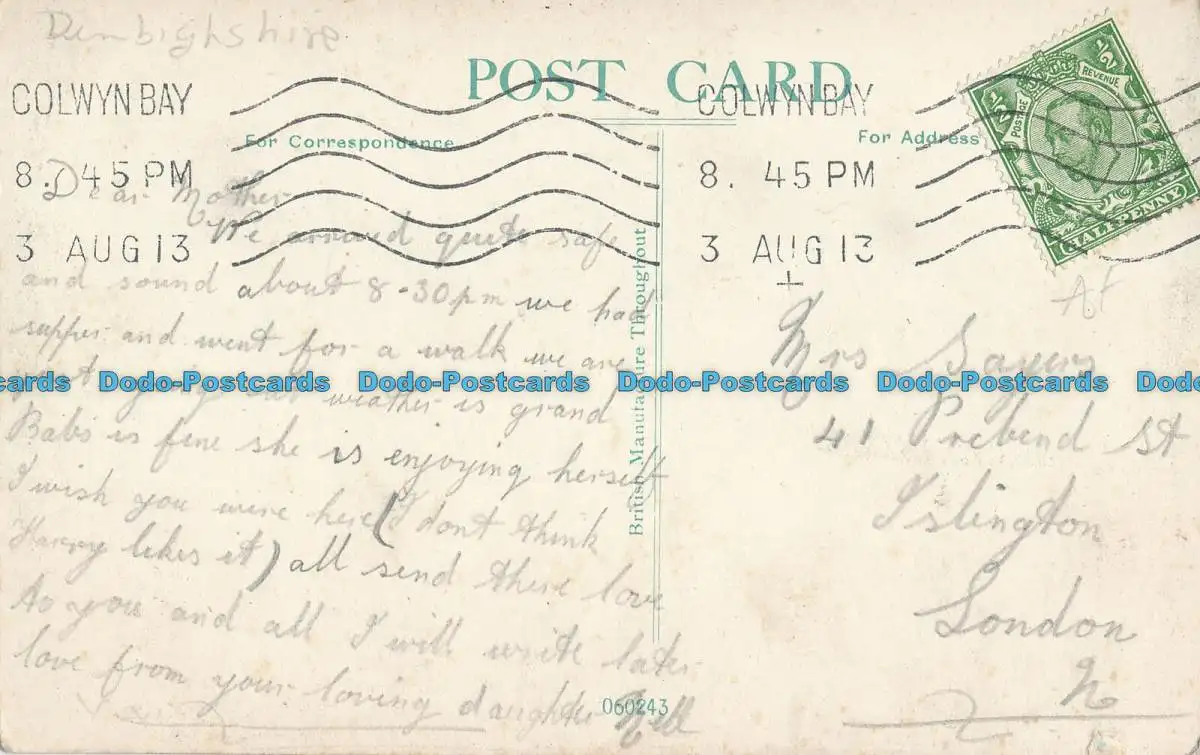 Denbighshire
POST CARD
COLWYN BAY
8. 45 PM
3 AUG 13
COLWYN BAY
8. 45 PM
3 AUG 13
For Correspondence
For Address
POSTAGE
REVENUE
½
½
HALFPENNY
Dear Mother
We arrived quite safe
and sound about 8-30pm we had
supper and went for a walk we are
weather is grand
Babs is fine she is enjoying herself
I wish you were here (I dont think
Harry likes it) all send there love
to you and all I will write later
love from your loving daughter Nell
British Manufacture Throughout
060243
AF
Mrs Sayers
41 Prebend St
Islington
London
N
Dodo-Postcards Dodo-Postcards Dodo-Postcards Dodo-Postcards